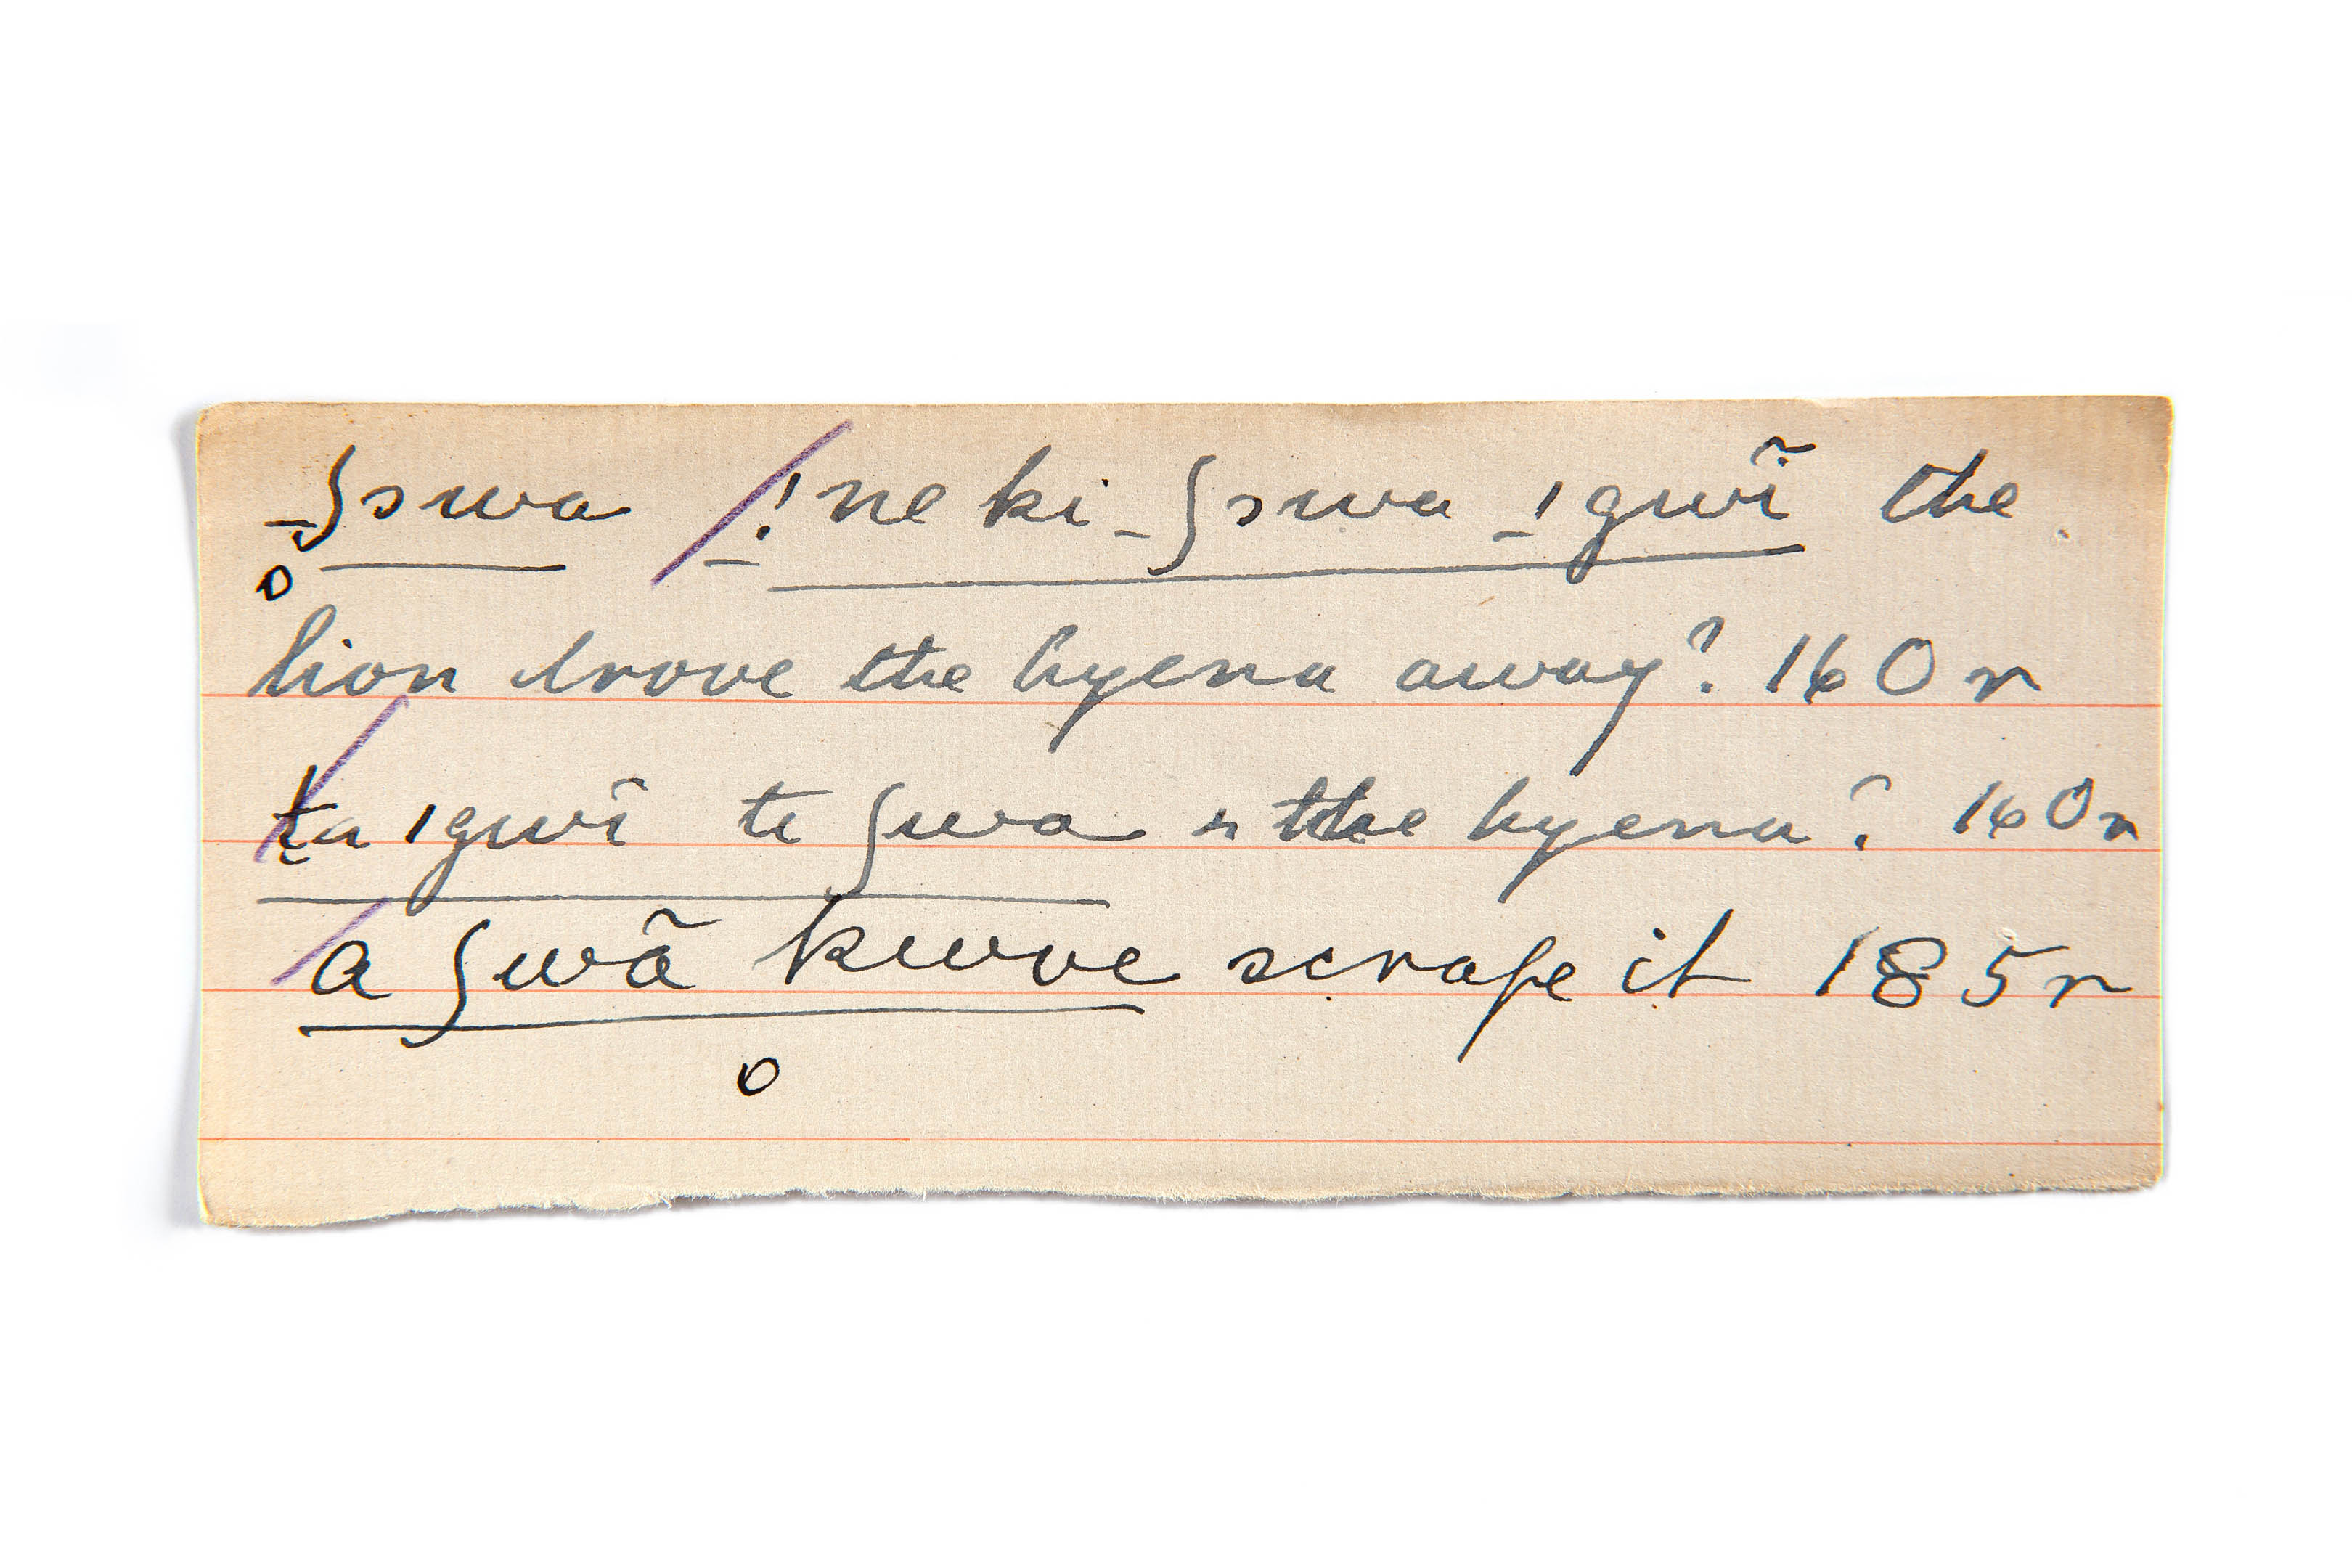 _ʃswa /_!ne ki _ʃswa _ıgwĩ the
o
lion drove the hyena away? 160 r
ta ıgwĩ ti ʃwa " the hyena? 160r
a ʃwã kwve scrape it 185r
o